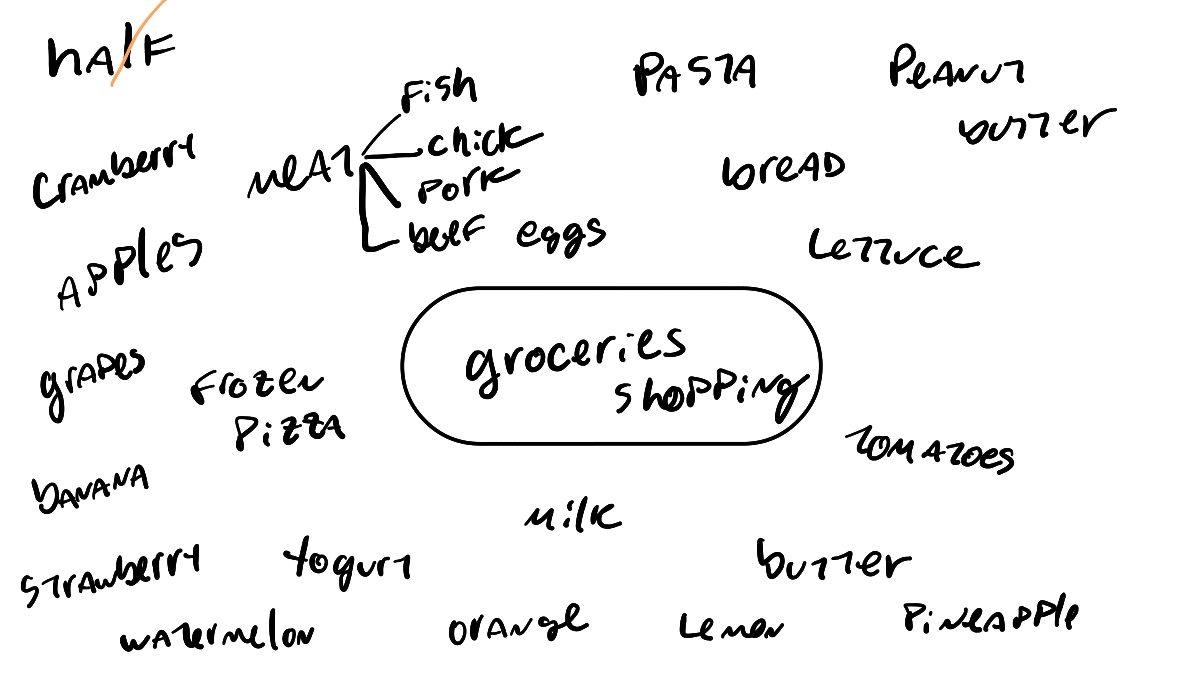 half
Pasta
Peanut
butter
Fish
chick
Pork
beef
meat
Cramberry
bread
eggs
Lettuce
Apples
groceries
shopping
grapes
Frozen
Pizza
Tomatoes
banana
milk
Strawberry
Yogurt
butter
watermelon
orange
Lemon
Pineapple